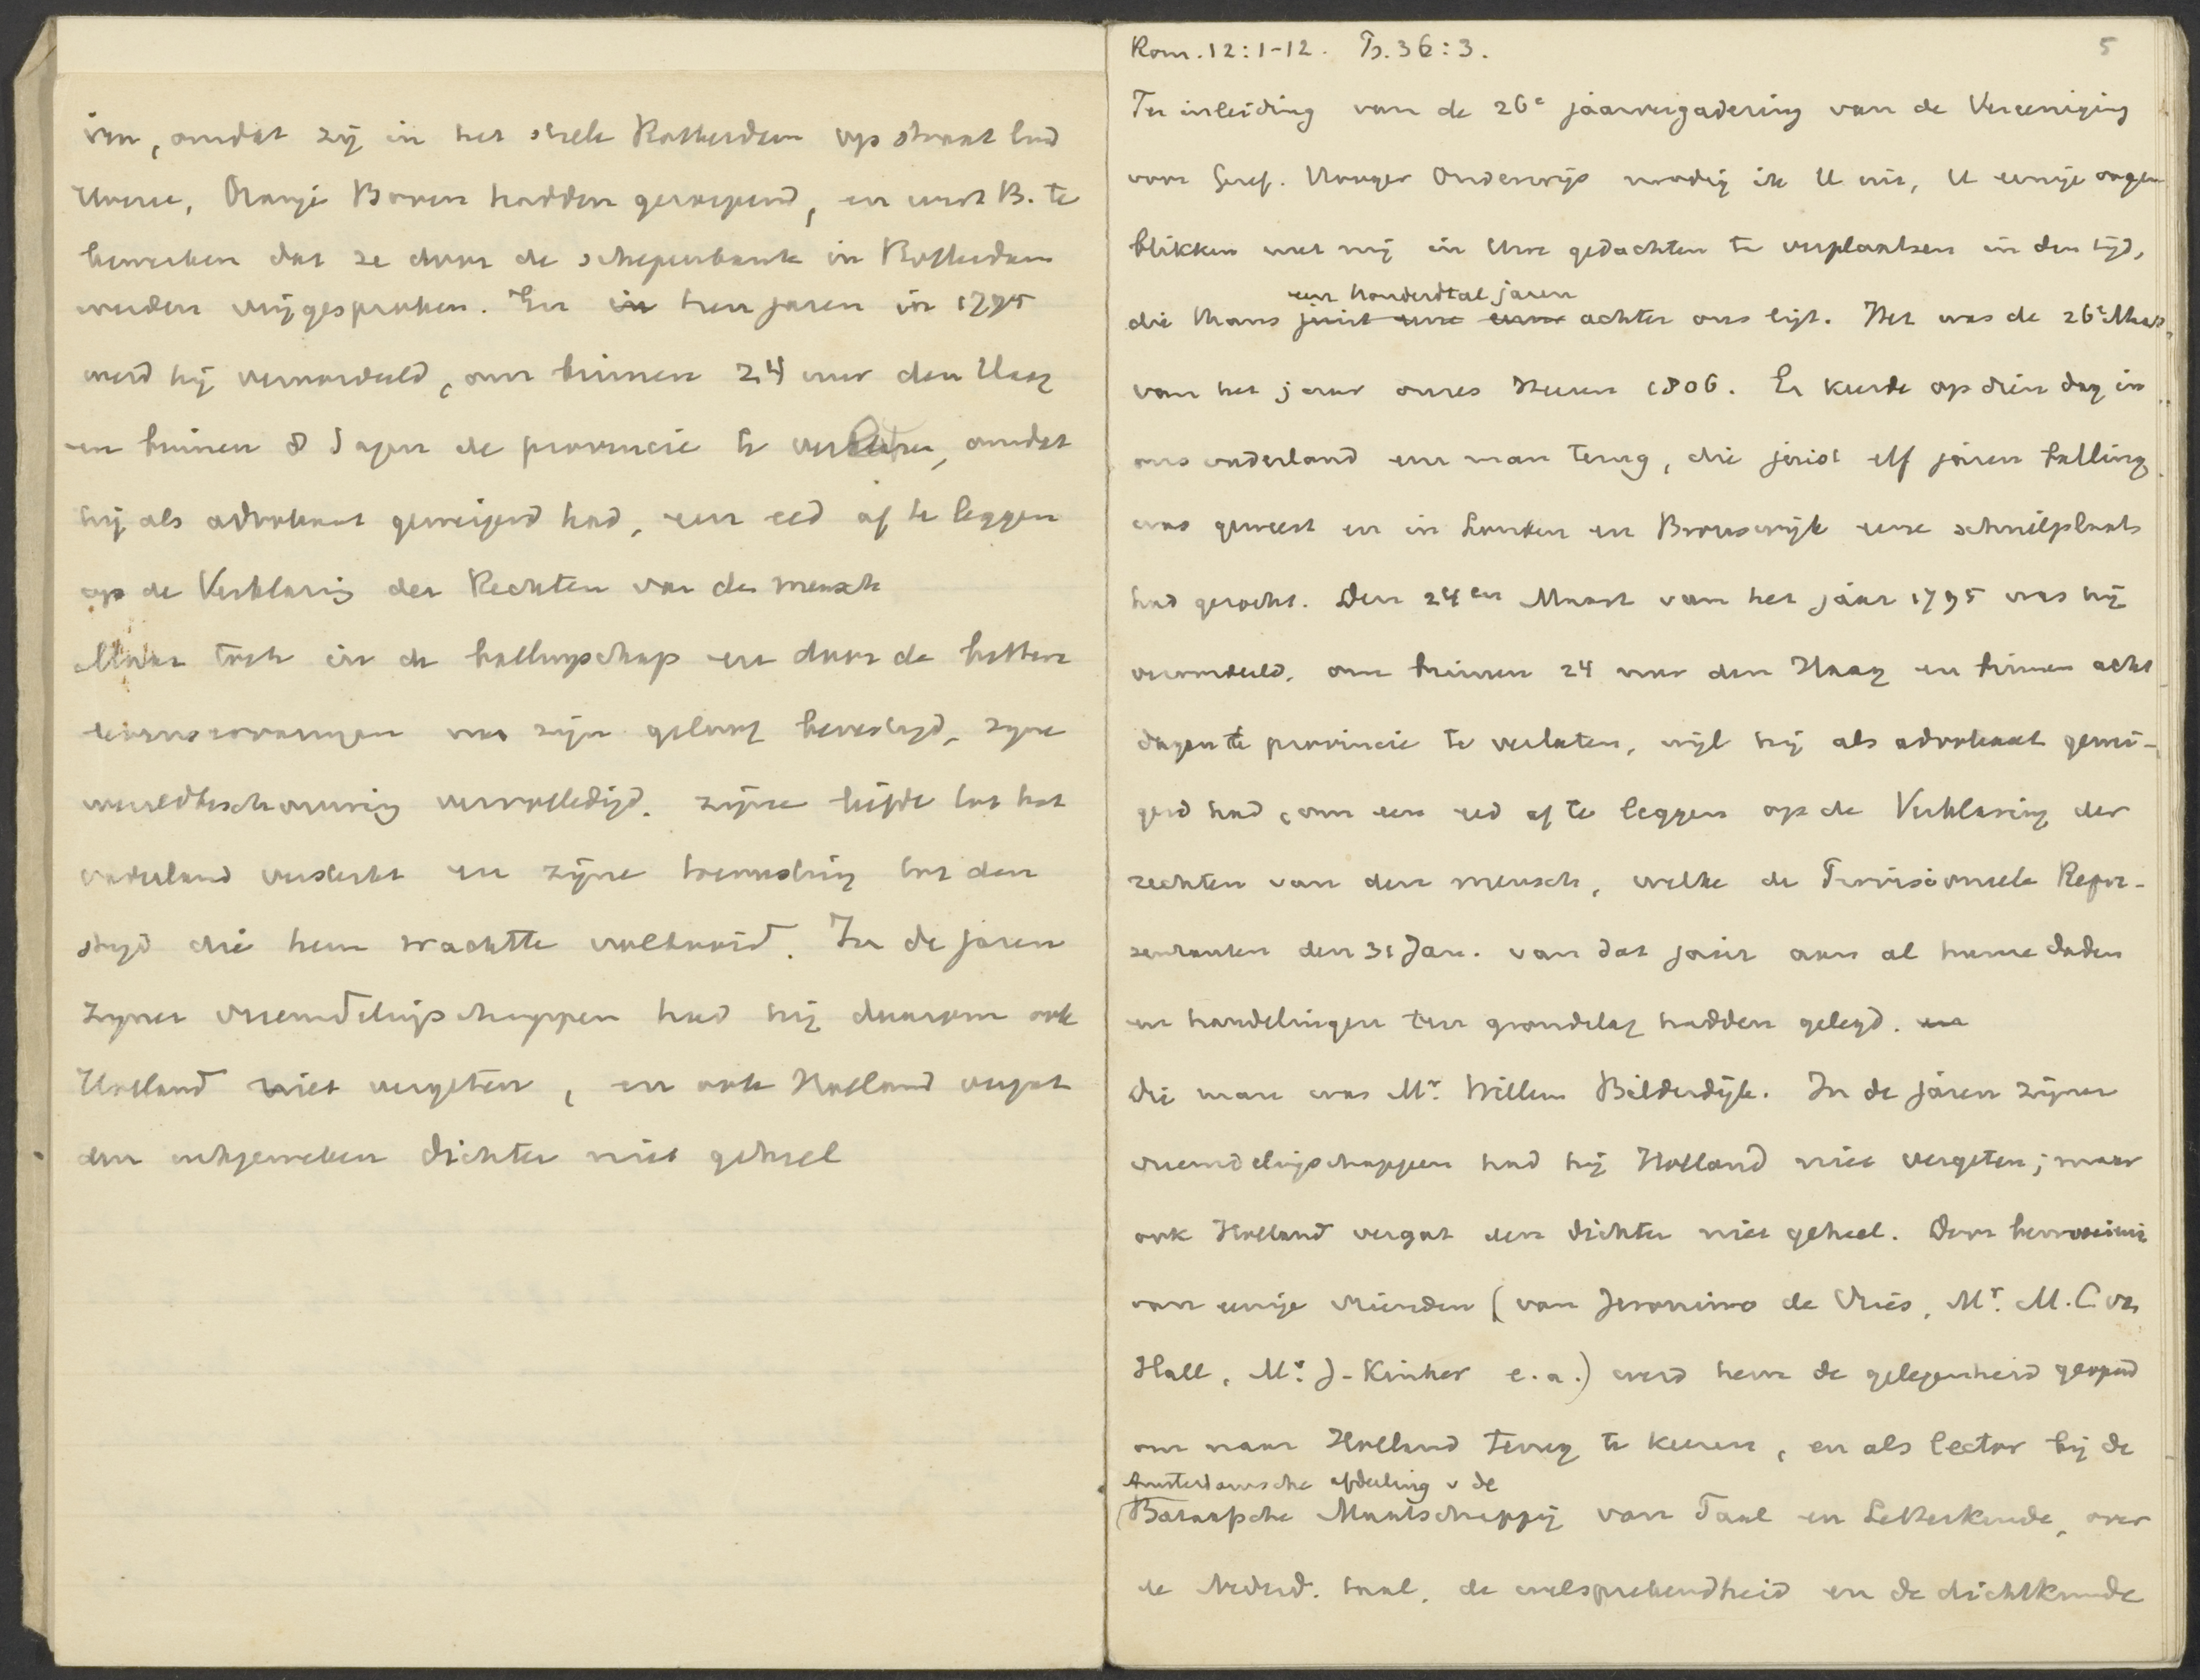 ven, omdat zij in het stele Rotterdam op straat luid
Oranje Boven hadden geroepend, en wist B. te
bewerken dat ze door de schepenbank in Rotterdam
werden vrijgesproken. En in hun jaren in 1795
werd hij veroordeeld, om binnen 24 uur den Haag
en binnen 8 dagen de provincie te verlaten, omdat
hij als advokaat geweigerd had, een eed af te leggen
op de Verklaring der Rechten van den mensch
Maar toch in de ballingschap en door de bittere
was zijn geloof bevestigd, zijne
wereldbeschouwing vervolledigd. zijne liefde tot het
vaderland versterkt en zijne toerusting tot den
strijd die hem wachtte voltooid. In de jaren
zijner vreemdelingschappen had hij daarom ook
Holland niet vergeten, en ook Holland vergat
den uitgeweken dichter niet geheel
Rom. 12:1-12. Ps. 36:3. 5
Ter inleiding van de 26e jaarvergadering van de Vereeniging
voor Geref. Hooger Onderwijs noodig ik U uit, U eenige oogen
blikken met mij in Uwe gedachten te verplaatsen in den tijd,
een honderdtal jaren
die thans juist achter ons ligt. Het was de 26e Maart
van het jaar onzes Heeren 1806. Er keerde op dien dag in
ons vaderland een man terug, die juist elf jaren balling
was geweest en in Londen en Brunswijk eene schuilplaats
had gezocht. Den 24en Maart van het jaar 1795 was hij
veroordeeld, om binnen 24 uur den Haag en binnen acht
dagen de provincie te verlaten, wijl hij als advokaat gewei-
gerd had, om een eed af te leggen op de Verklaring der
rechten van den mensch, welke de Provisioneele Repre-
sentanten den 31 Jan. van dat jaar aan al hunne daden
en handelingen ten grondslag hadden gelegd. en
Die man was Mr. Willem Bilderdijk. In de jaren zijner
vreemdelingschappen had hij Holland niet vergeten; maar
ook Holland vergat den dichter niet geheel. Door bemoeiing
van eenige vrienden (van Jeronimo de Vries, Mr. M. C. van
Hall, Mr. J. Kinker e.a.) werd hem de gelegenheid geopend
om naar Holland terug te keeren, en als lector bij de
Amsterdamsche afdeeling v de
(Bataafsche Maatschappij van Taal en Letterkunde, over
de Nederd. taal, de welsprekendheid en de dichtkunde